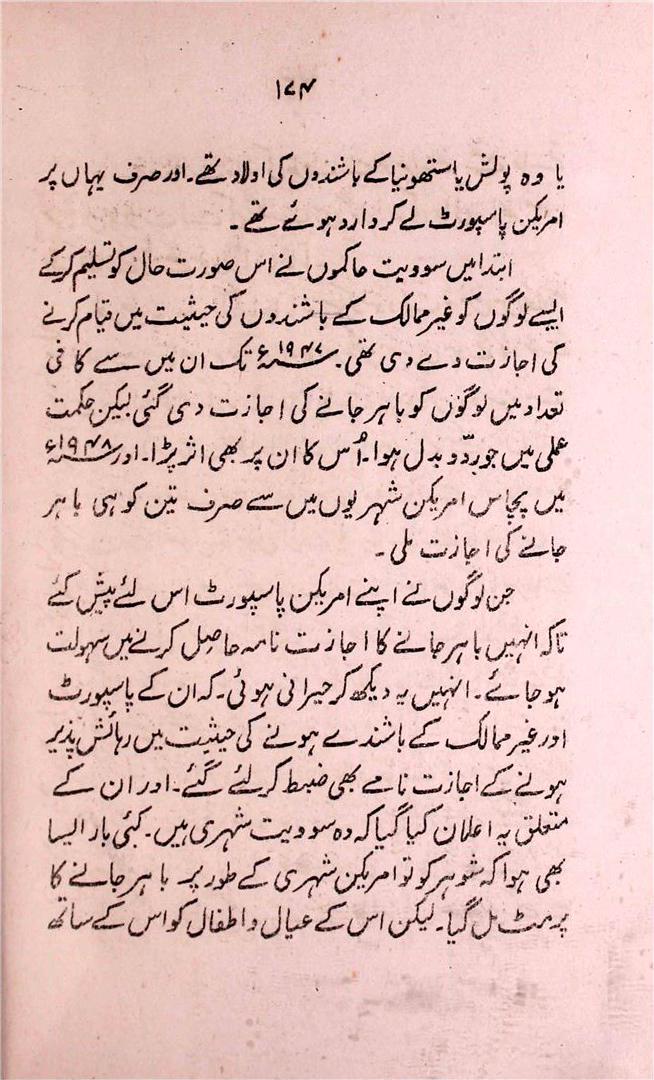 ۱۷۴
یا وہ پولش یا استھونیا کے باشندوں کی اولاد تھے۔ اور صرف یہاں پر
امریکن پاسپورٹ لے کر وارد ہوئے تھے۔
ابتدا میں سوویت حاکموں نے اس صورت حال کو تسلیم کر کے
ایسے لوگوں کو غیر ممالک کے باشندوں کی حیثیت میں قیام کرنے
کی اجازت دے دی تھی۔ ۱۹۴۷ء تک ان میں سے کافی
تعداد میں لوگوں کو باہر جانے کی اجازت دی گئی لیکن حکمت
عملی میں جو ردّ و بدل ہوا۔ اُس کا ان پر بھی اثر پڑا۔ اور ۱۹۴۸ء
میں پچاس امریکن شہریوں میں سے صرف تین کو ہی باہر
جانے کی اجازت ملی۔
جن لوگوں نے اپنے امریکن پاسپورٹ اس لئے پیش کئے
تاکہ انہیں باہر جانے کا اجازت نامہ حاصل کرنے میں سہولت
ہو جائے۔ انہیں یہ دیکھ کر حیرانی ہوئی۔ کہ ان کے پاسپورٹ
اور غیر ممالک کے باشندے ہونے کی حیثیت میں رہائش پذیر
ہونے کے اجازت نامے بھی ضبط کر لئے گئے۔ اور ان کے
متعلق یہ اعلان کیا گیا کہ وہ سوویت شہری ہیں۔ کئی بار ایسا
بھی ہوا کہ شوہر کو تو امریکن شہری کے طور پر باہر جانے کا
پرمٹ مل گیا۔ لیکن اس کے عیال و اطفال کو اس کے ساتھ